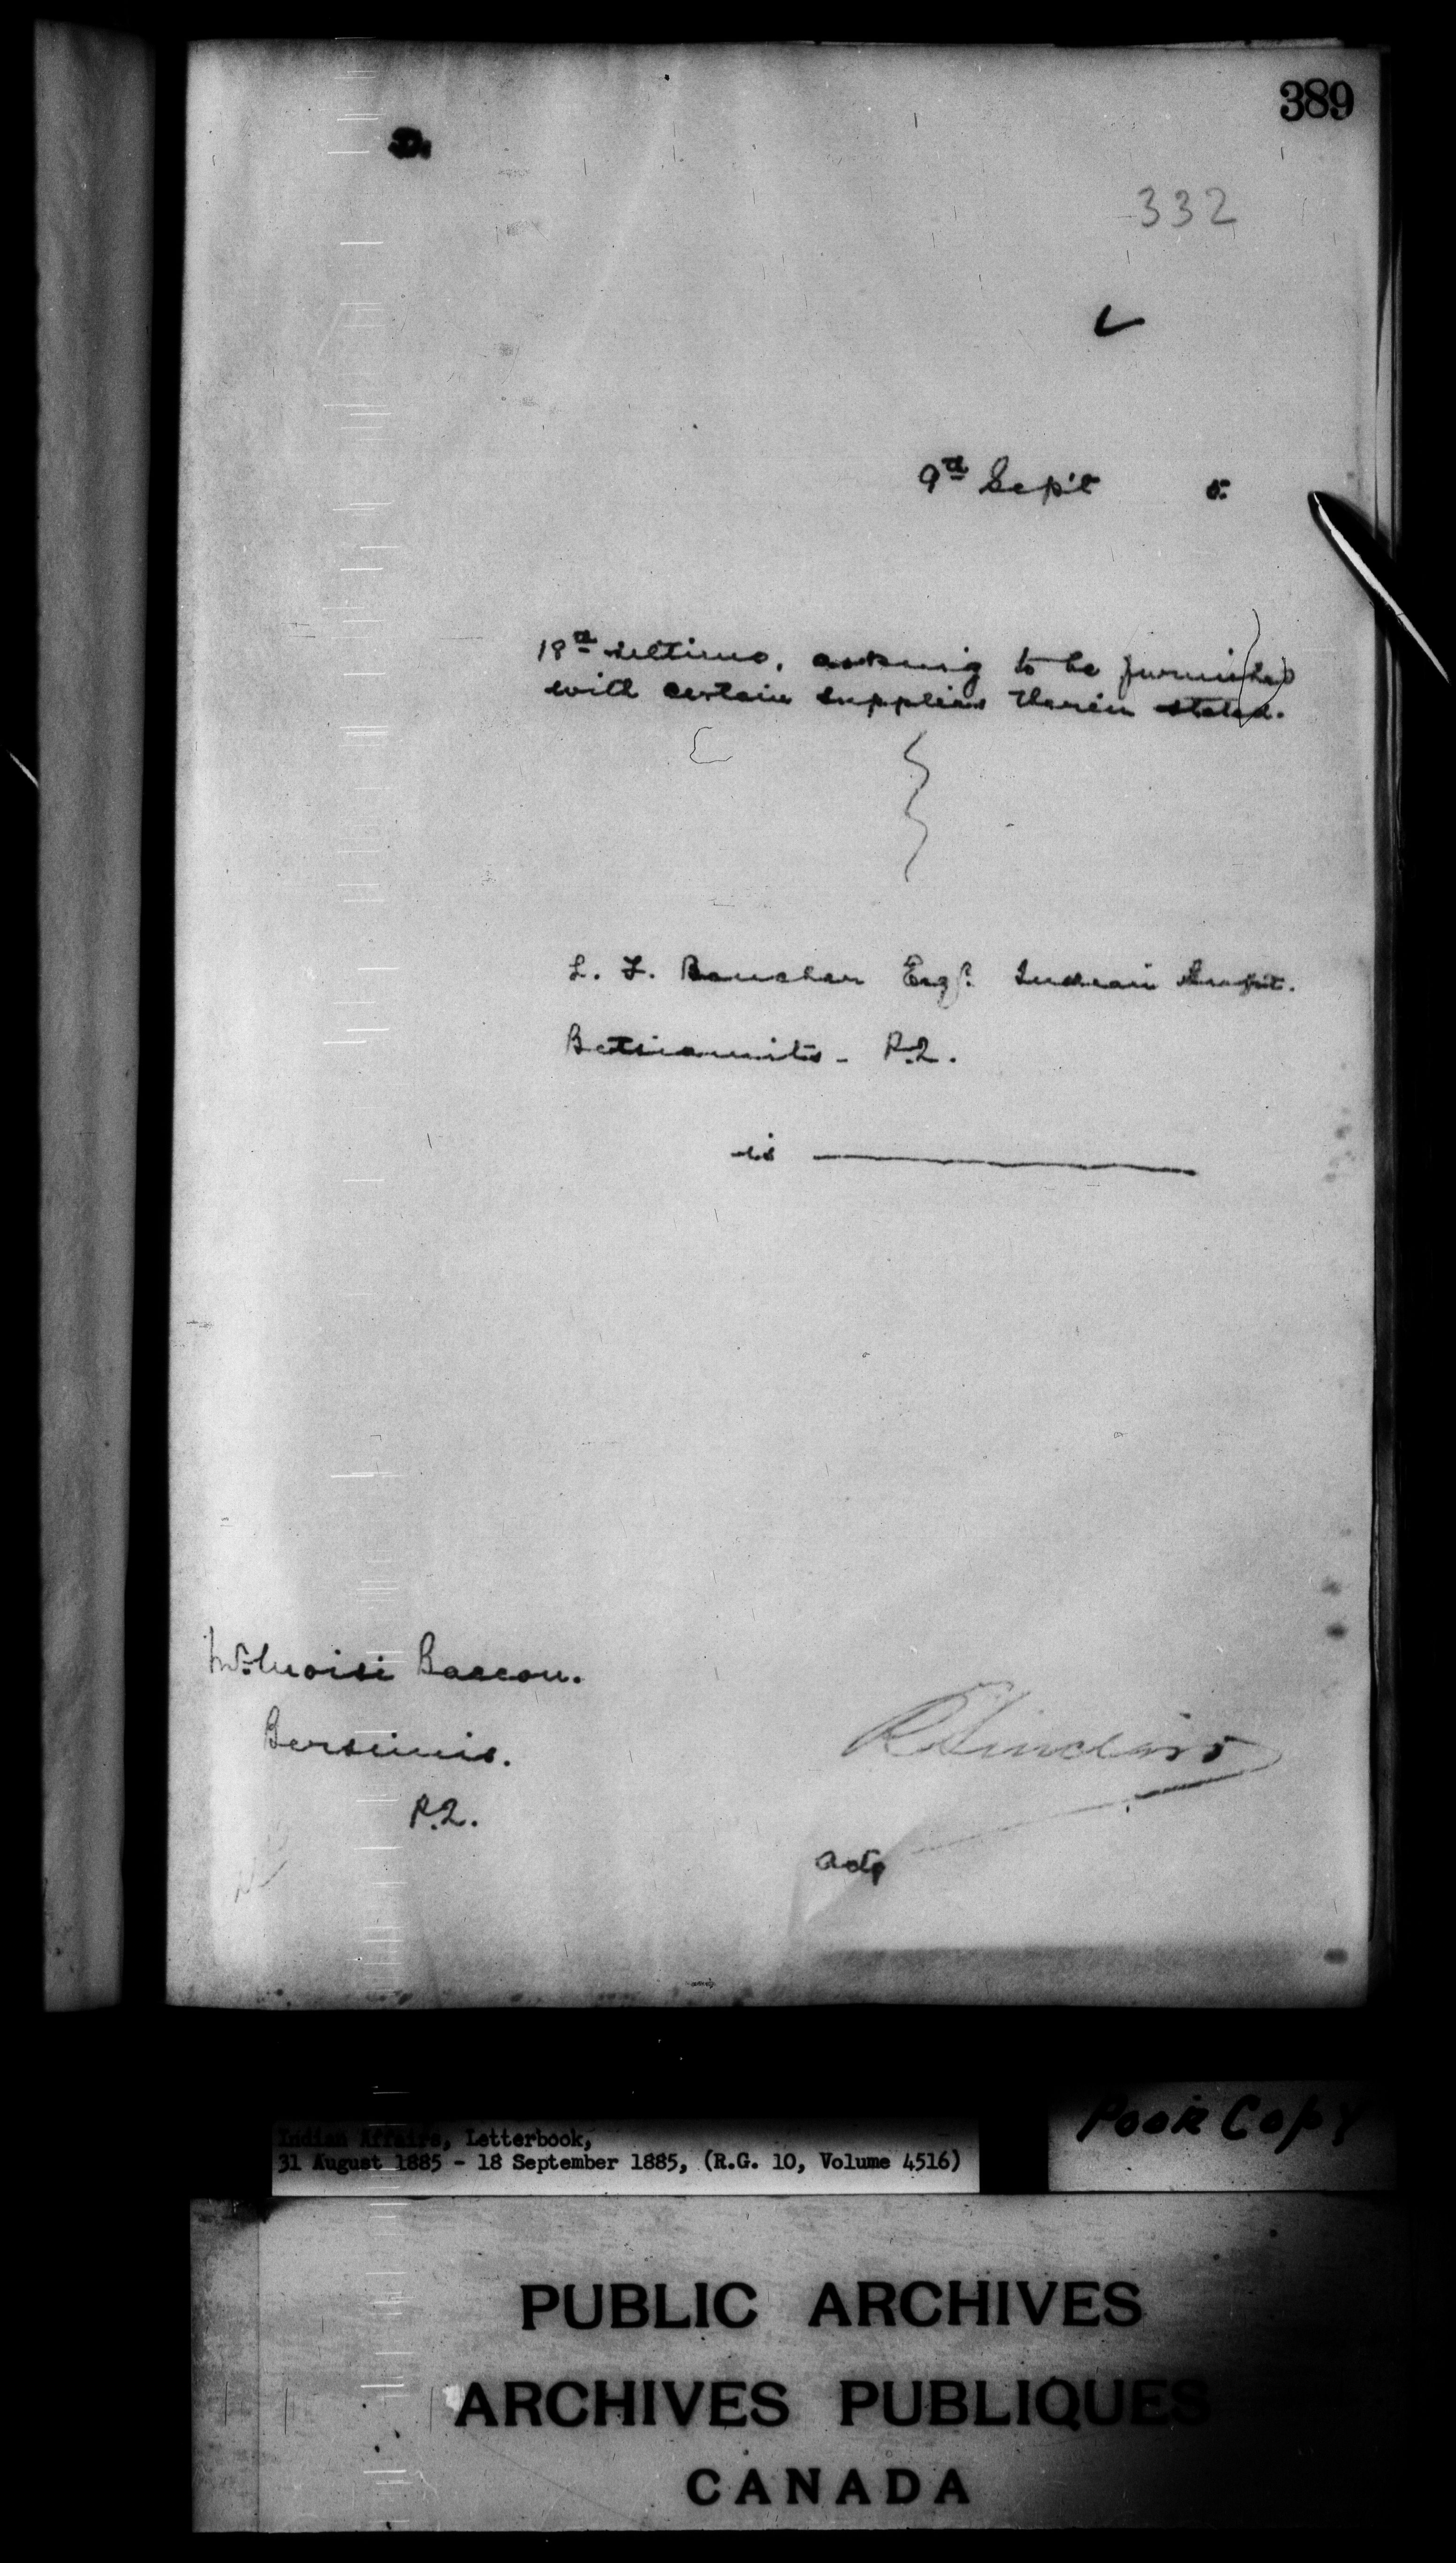 389
332
9th Sept 5.
18th ultimo, asking to be furnished
with certain supplies therein stated.
L. F. Boucher Esqr. Indian Supt.
Betsiamits - P.Q.
is
Mr. Moise Baccon.
Bersimis.
P.Q.
R Sinclair
actg
Indian Affairs, Letterbook,
31 August 1885 - 18 September 1885, (R.G. 10, Volume 4516)
Poor Copy
PUBLIC ARCHIVES
ARCHIVES PUBLIQUES
CANADA